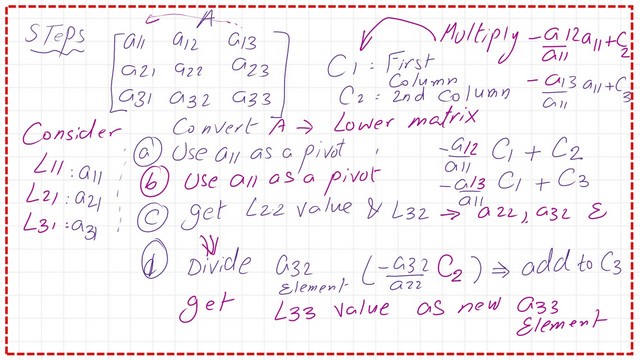 STEPS
A
a11 a12 a13
a21 a22 a23
a31 a32 a33
Multiply -a12/a11 a11 + C2
-a13/a11 a11 + C3
C1 : First Column
C2 : 2nd Column
Consider
L11 : a11
L21 : a21
L31 : a31
Convert A → Lower matrix
(a) Use a11 as a pivot , -a12/a11 C1 + C2
(b) Use a11 as a pivot -a13/a11 C1 + C3
(c) get L22 value & L32 → a22, a32 &
(d) Divide a32 Element (-a32/a22 C2) ⇒ add to C3
get L33 value as new a33 Element